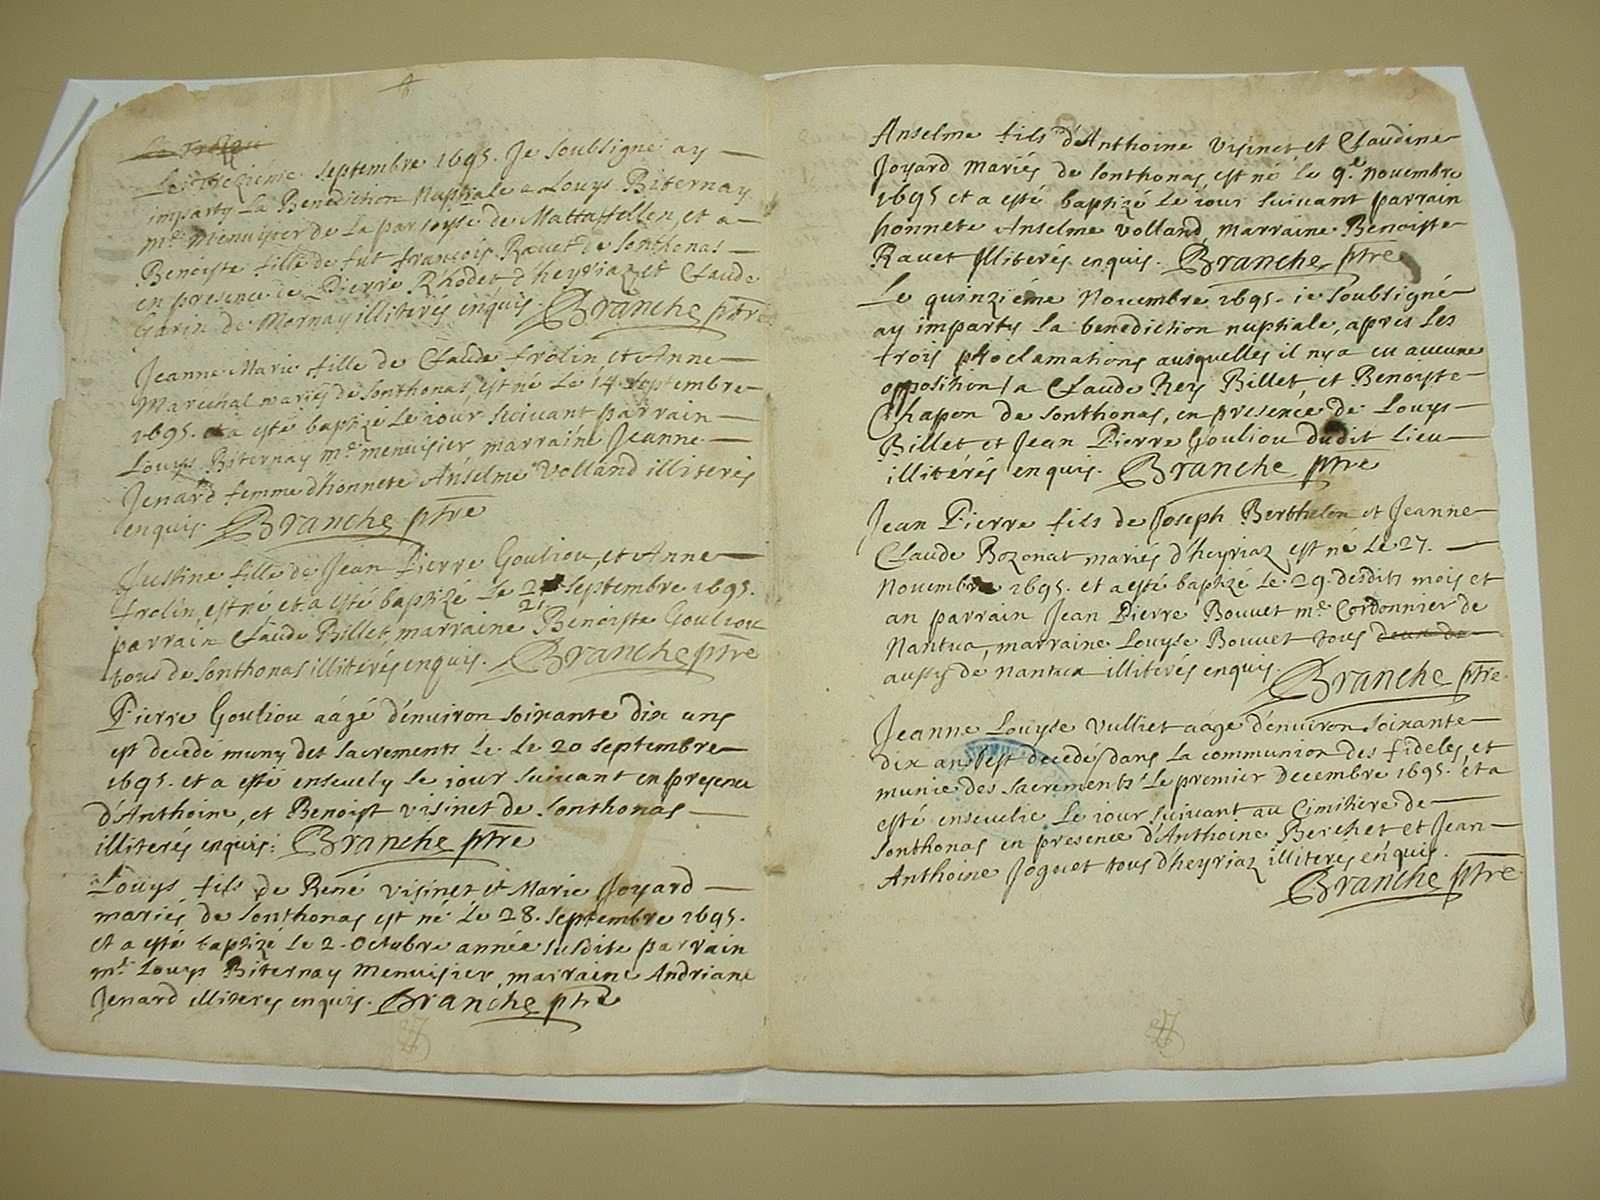 Le treizieme septembre 1695. Je soubsigné ay
imparty la Benediction Nuptiale a Louys Biternay
m.e Menuisier de la parroysse de Mattaffellen, et a
Benoiste fille de fut françois Rauet de Sonthonas
en presence de Pierre Rhodet d'heyriaz et Claude
Garin de Mornay illiterés enquis. Branche ptre
Jeanne Marie fille de Claude frolin et Anne
Marechal mariés de Sonthonas, est né le 14. Septembre
1695. et a esté baptizé le iour suiuant parrain
Louys Biternay m.e menuisier, marraine Jeanne
Jenard femme d'honnete Anselme Volland illiterés
enquis. Branche ptre
Justine fille de Jean Pierre Gouliou, et Anne
frolin est né et a esté baptizé le 21 Septembre 1695.
21
parrain Claude Billet, marraine Benoiste Gouliou
tous de Sonthonas illiterés enquis. Branche ptre
Pierre Gouliou aagé d'enuiron soixante dix ans
est decedé muny des sacrements le le 20 septembre
1695. et a esté enseuely le iour suiuant en presence
d'Anthoine, et Benoist Visinet de Sonthonas
illiterés enquis: Branche ptre
Louys fils de René Visinet et Marie Joyard
mariés de Sonthonas est né le 28. Septembre 1695.
et a esté baptizé le 2. Octobre année susdite parrain
m.e Louys Biternay Menuisier, marraine Andriane
Jenard illiterés enquis. Branche ptre
Anselme fils d'Anthoine Visinet et Claudine
Joyard Mariés de Sonthonas est né le 9.e Nouembre
1695 et a esté baptizé le iour suiuant parrain
honnete Anselme Volland, marraine Benoiste
Rauet Illiterés enquis. Branche ptre
Le quinziéme Nouembre 1695. ie soubsigné
ay imparty la benediction nuptiale, apres les
trois proclamations ausquelles il n'y a eu aucune
opposition, a Claude Rey Billet et Benoyste
Chapon de Sonthonas, en presence de Louys
Billet et Jean Pierre Gouliou dudit lieu
illitérés enquis. Branche ptre
Jean Pierre fils de Joseph Berthelon et Jeanne
Claude Bozonat mariés d'heyriaz est né le 27.
Nouembre 1695. et a esté baptizé le 29. desdits mois et
an parrain Jean Pierre Bouuet m.e Cordonnier de
Nantua, marraine Louyse Bouuet tous
aussy de Nantua illiterés enquis.
Branche ptre
Jeanne Louyse Vulliet aagé d'enuiron soixante
dix ans est decedés dans la communion des fideles et
munie des sacrements le premier decembre 1695. et a
esté enseuelie le iour suiuant au Cimitiere de
Sonthonas en presence d'Anthoine Berchet et Jean
Anthoine Joguet tous d'heyriaz illiterés enquis.
Branche ptre